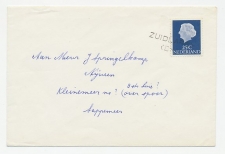 ZUID
25 C
NEDERLAND
Aan Mevr J Sprengelkamp
Nijveen
Kleinemeer no ! (over spoor)
Sappemeer